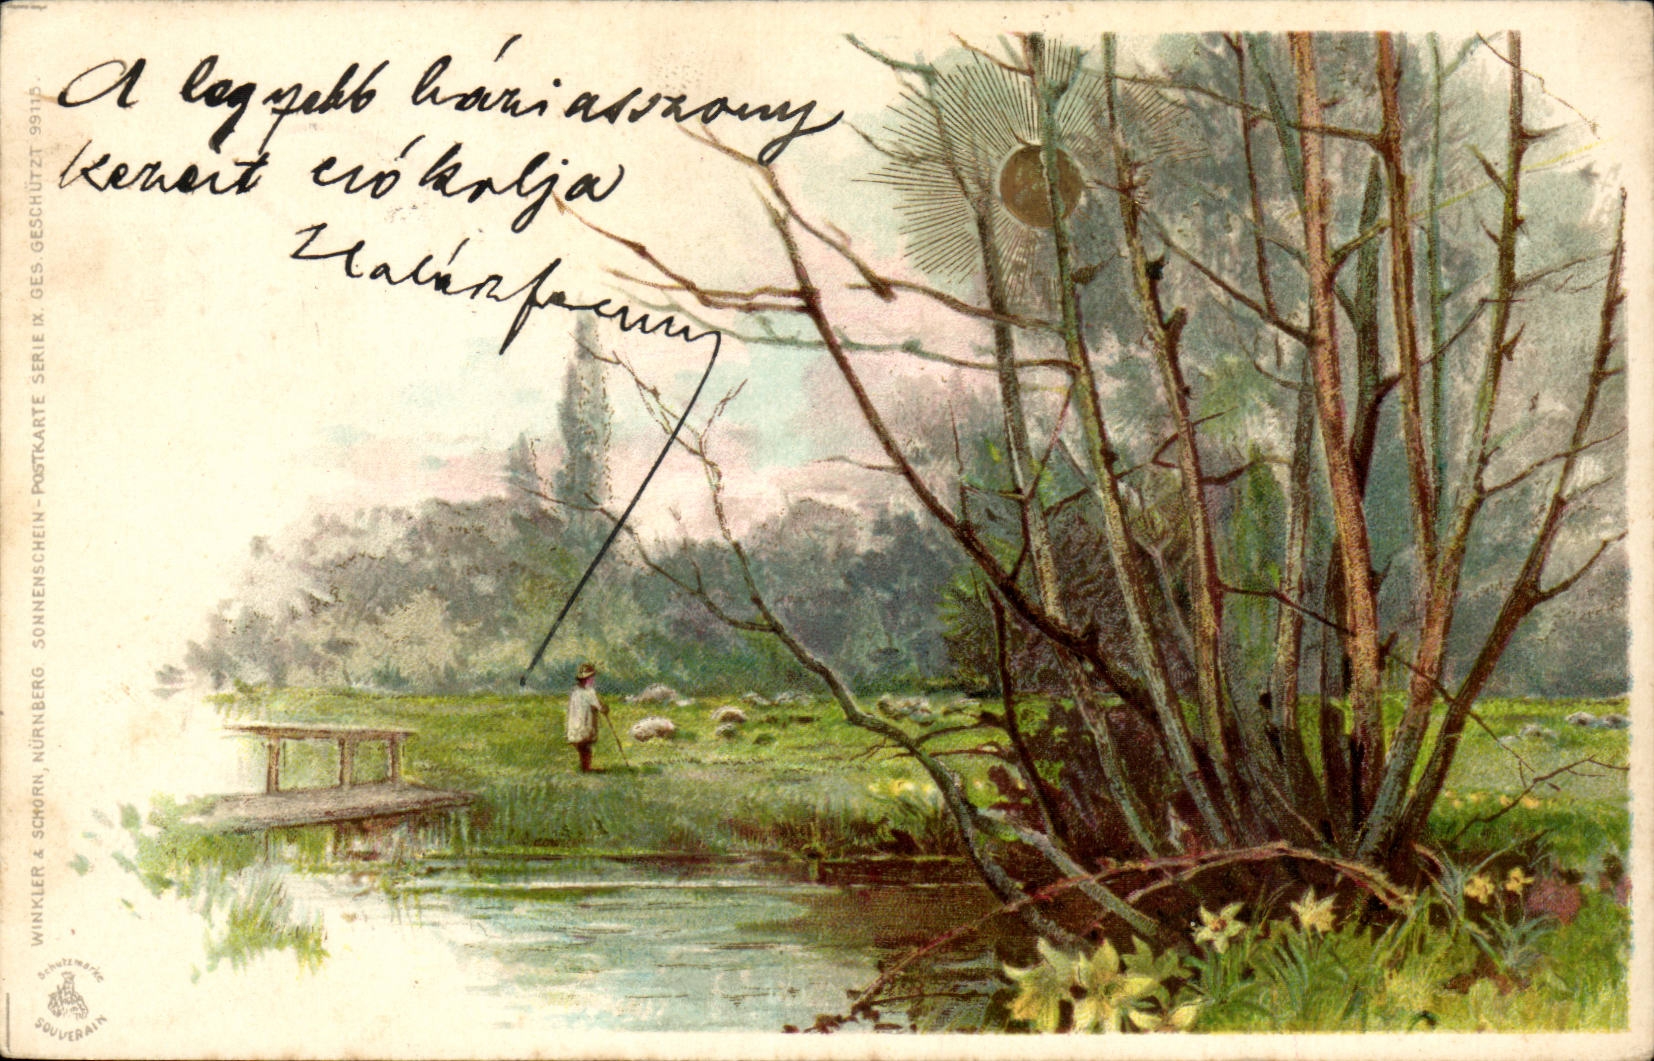 A legjobb háziasszony
kezeit csókolja
Halászferenc
WINKLER & SCHORN, NÜRNBERG. SONNENSCHEIN-POSTKARTE SERIE IX. GES. GESCHÜTZT 99115.
Schutzmarke
SOUVERAIN